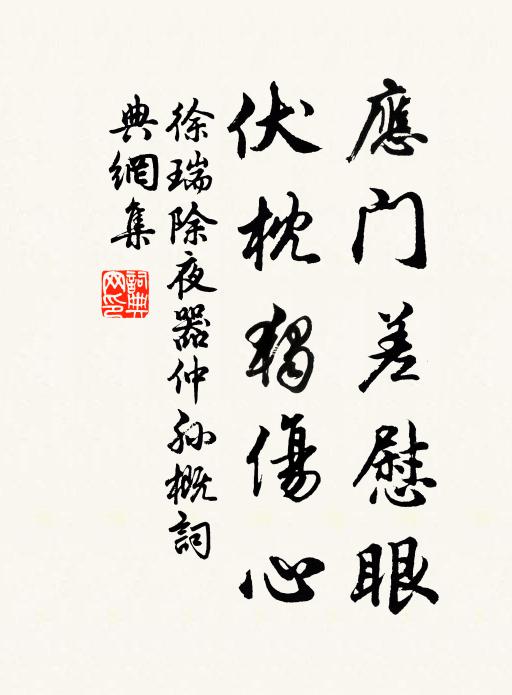 應門差慰眼
伏枕獨傷心
徐瑞除夜器仲孫概詞
典網集
詞典網印